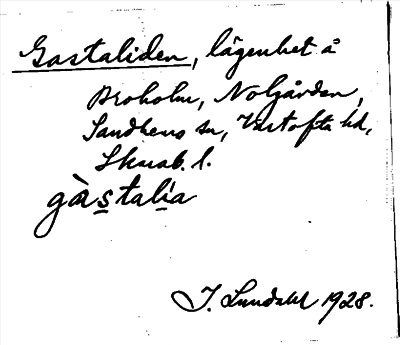 Gastaliden, lägenhet å
Broholm, Nolgården,
Sandhems sn, Vartofta hd,
Skarab. l.
gàstalia
J. Lundahl 1928.